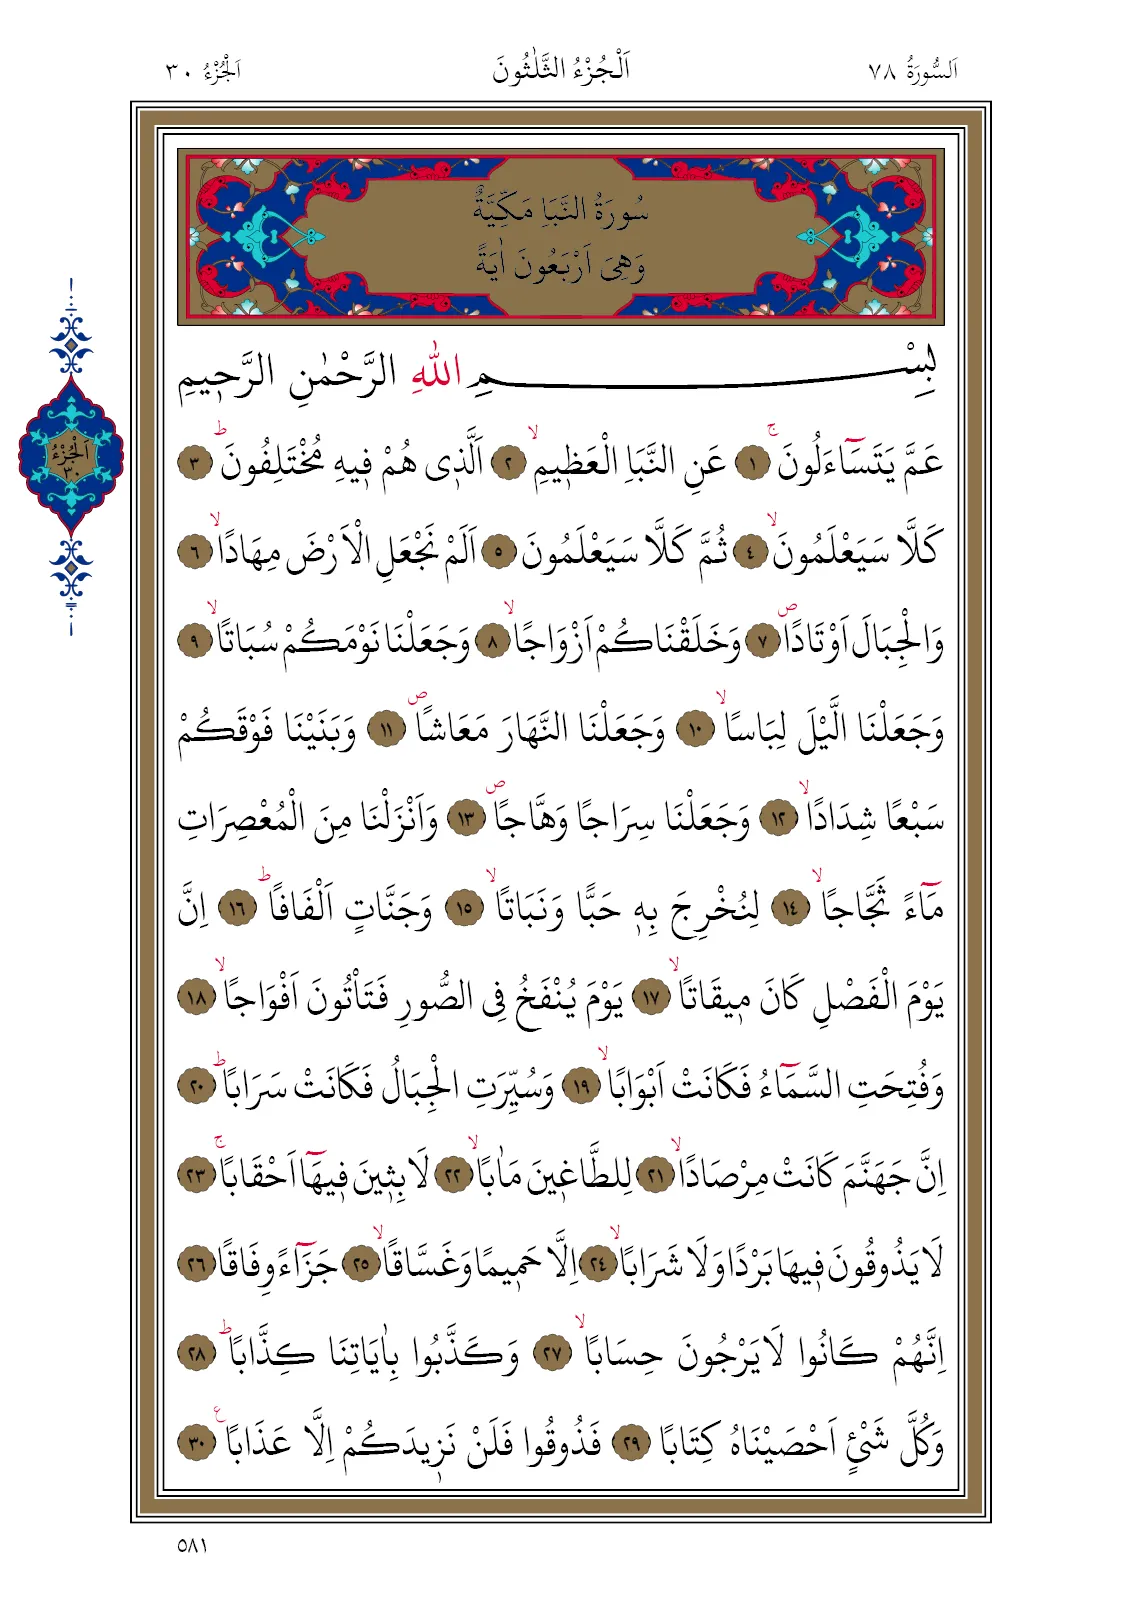 اَلسُّورَةُ ٧٨
اَلْجُزْءُ الثَّلٰثُونَ
اَلْجُزْءُ ٣٠
سُورَةُ النَّبَأِ مَكِّيَّةٌ
وَهِىَ اَرْبَعُونَ اٰيَةً
اَلْجُزْءُ
٣٠
بِسْمِ اللّٰهِ الرَّحْمٰنِ الرَّح۪يمِ
عَمَّ يَتَسَٓاءَلُونَۚ ﴿١﴾ عَنِ النَّبَأِ الْعَظ۪يمِۙ ﴿٢﴾ اَلَّذ۪ى هُمْ ف۪يهِ مُخْتَلِفُونَۜ ﴿٣﴾
كَلَّا سَيَعْلَمُونَۙ ﴿٤﴾ ثُمَّ كَلَّا سَيَعْلَمُونَ ﴿٥﴾ اَلَمْ نَجْعَلِ الْاَرْضَ مِهَادًاۙ ﴿٦﴾
وَالْجِبَالَ اَوْتَادًاۖ ﴿٧﴾ وَخَلَقْنَاكُمْ اَزْوَاجًاۙ ﴿٨﴾ وَجَعَلْنَا نَوْمَكُمْ سُبَاتًاۙ ﴿٩﴾
وَجَعَلْنَا الَّيْلَ لِبَاسًاۙ ﴿١٠﴾ وَجَعَلْنَا النَّهَارَ مَعَاشًاۖ ﴿١١﴾ وَبَنَيْنَا فَوْقَكُمْ
سَبْعًا شِدَادًاۙ ﴿١٢﴾ وَجَعَلْنَا سِرَاجًا وَهَّاجًاۖ ﴿١٣﴾ وَاَنْزَلْنَا مِنَ الْمُعْصِرَاتِ
مَٓاءً ثَجَّاجًاۙ ﴿١٤﴾ لِنُخْرِجَ بِه۪ حَبًّا وَنَبَاتًاۙ ﴿١٥﴾ وَجَنَّاتٍ اَلْفَافًاۜ ﴿١٦﴾ اِنَّ
يَوْمَ الْفَصْلِ كَانَ م۪يقَاتًاۙ ﴿١٧﴾ يَوْمَ يُنْفَخُ فِى الصُّورِ فَتَأْتُونَ اَفْوَاجًاۙ ﴿١٨﴾
وَفُتِحَتِ السَّمَٓاءُ فَكَانَتْ اَبْوَابًاۙ ﴿١٩﴾ وَسُيِّرَتِ الْجِبَالُ فَكَانَتْ سَرَابًاۜ ﴿٢٠﴾
اِنَّ جَهَنَّمَ كَانَتْ مِرْصَادًاۙ ﴿٢١﴾ لِلطَّاغ۪ينَ مَاٰبًاۙ ﴿٢٢﴾ لَابِث۪ينَ ف۪يهَٓا اَحْقَابًاۚ ﴿٢٣﴾
لَا يَذُوقُونَ ف۪يهَا بَرْدًا وَلَا شَرَابًاۙ ﴿٢٤﴾ اِلَّا حَم۪يمًا وَغَسَّاقًاۙ ﴿٢٥﴾ جَزَٓاءً وِفَاقًا ﴿٢٦﴾
اِنَّهُمْ كَانُوا لَا يَرْجُونَ حِسَابًاۙ ﴿٢٧﴾ وَكَذَّبُوا بِاٰيَاتِنَا كِذَّابًاۜ ﴿٢٨﴾
وَكُلَّ شَىْءٍ اَحْصَيْنَاهُ كِتَابًا ﴿٢٩﴾ فَذُوقُوا فَلَنْ نَز۪يدَكُمْ اِلَّا عَذَابًا ع ﴿٣٠﴾
٥٨١